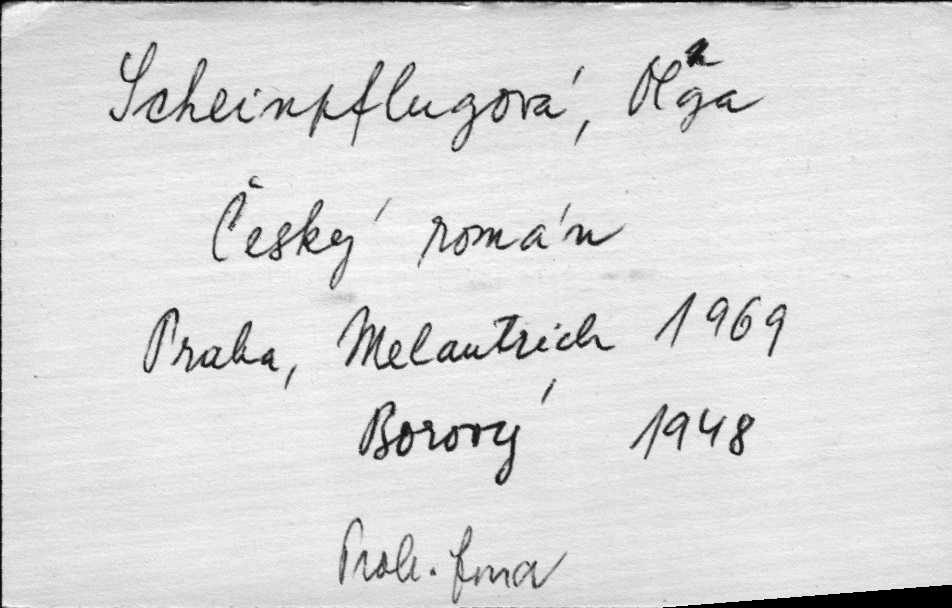 Scheinpflugová, Olga
Český román
Praha, Melantrich 1969
Borový 1948